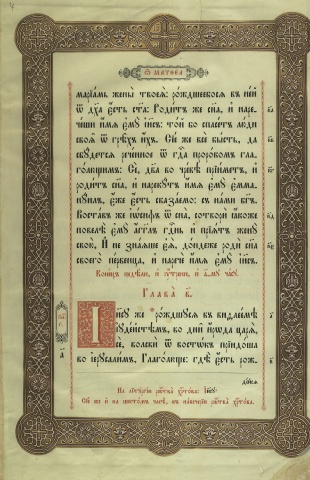 Ѿ МАТѲЕА
марїа́мъ жены̀ твоеѧ̀: ро́ждшеебосѧ въ не́й
ѿ дх҃а є҆́сть ст҃а: Роди́тъ же сн҃а, и҆ наре-
че́ши и҆́мѧ є҆мꙋ̀ і҆и҃съ: то́й бо сп҃се́тъ лю́ди
своѧ̑ ѿ грѣ̑хъ и҆́хъ. Сїе́ же всѐ бы́сть, да
сбꙋ́детсѧ рече́нное ѿ гд҇а прⷪ҇ро́комъ гла-
го́лющимъ: Сѐ, дв҃а во чре́вѣ прїи́метъ, и҆
роди́тъ сн҃а, и҆ нарекꙋ́тъ и҆́мѧ є҆мꙋ̀ є҆мма-
нꙋ́илъ, є҆́же є҆́сть сказа́емо: съ на́ми бг҃ъ.
Воста́въ же і҆ѡ́сифъ ѿ сна̀, сотворѝ ꙗ҆́коже
повелѣ̀ є҆мꙋ̀ а҆́гг҃лъ гдⷭ҇нь, и҆ прїѧ́тъ женꙋ̀
свою̀. И҆ не зна́ѧше є҆ѧ̀, до́ндеже родѝ сн҃а
своего̀ пе́рвенца, и҆ наречѐ и҆́мѧ є҆мꙋ̀ і҆и҃съ.
Коне́цъ недѣ́ли, и҆ ᲂу҆́трени, и҆ а҃-мꙋ часꙋ̀
Глава̀ в҃.
І҆и҃сꙋ же ро́ждшꙋсѧ въ виѳлее́мѣ
і҆ꙋде́йстѣмъ, во дни̑ и҆́рѡда царѧ̀,
сѐ, волсвѝ ѿ восто̑къ прїидо́ша
во і҆ерⷭ҇али́мъ, Глаго́люще: гдѣ̀ є҆́сть рож-
На лїтꙋргі́и ржⷭ҇тва̀ хрⷭ҇то́ва: І҆и҃сꙋ